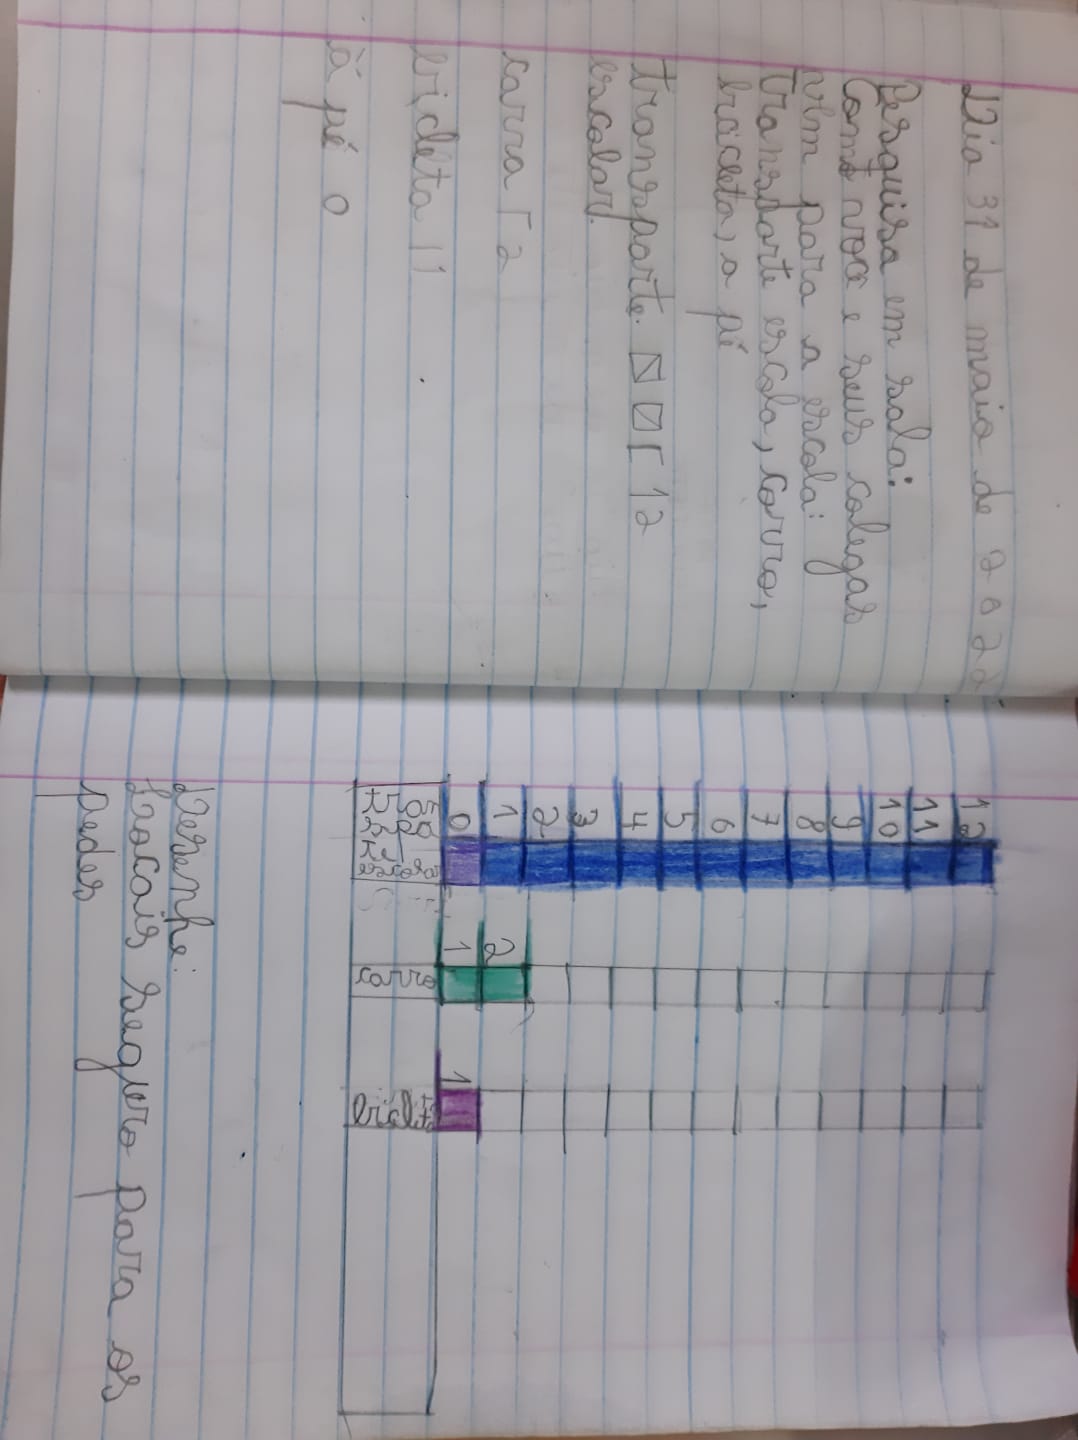 Dia 31 de maio de 2022
Pesquisa em sala:
Como voce e seus colegas
vem para a escola:
Transporte escola, carro,
bicicleta, a pé
transporte. 12
escolar.
carro 2
bicleta 1
à pé 0
12
11
10
9
8
7
6
5
4
3
2
1
0
escolar
2
1
carro
1
Desenhe:
Locais seguro para os
pedes